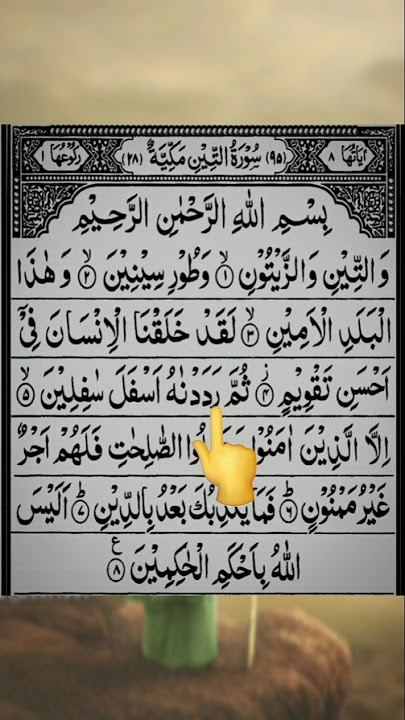 اٰيَاتُهَا ٨ (٩٥) سُوْرَةُ التِّيْنِ مَكِّيَّةٌ (٢٨) رُكُوْعُهَا ١
بِسْمِ اللّٰهِ الرَّحْمٰنِ الرَّحِيْمِ
وَالتِّيْنِ وَالزَّيْتُوْنِ ۙ﴿١﴾ وَطُوْرِ سِيْنِيْنَ ۙ﴿٢﴾ وَهٰذَا
الْبَلَدِ الْاَمِيْنِ ۙ﴿٣﴾ لَقَدْ خَلَقْنَا الْاِنْسَانَ فِيْۤ
اَحْسَنِ تَقْوِيْمٍ ۡ﴿٤﴾ ثُمَّ رَدَدْنٰهُ اَسْفَلَ سٰفِلِيْنَ ۙ﴿٥﴾
اِلَّا الَّذِيْنَ اٰمَنُوْا الصّٰلِحٰتِ فَلَهُمْ اَجْرٌ
غَيْرُ مَمْنُوْنٍ ؕ﴿٦﴾ فَمَا يُكَذِّبُكَ بَعْدُ بِالدِّيْنِ ؕ﴿٧﴾ اَلَيْسَ
اللّٰهُ بِاَحْكَمِ الْحٰكِمِيْنَ ﴿٨﴾ ع